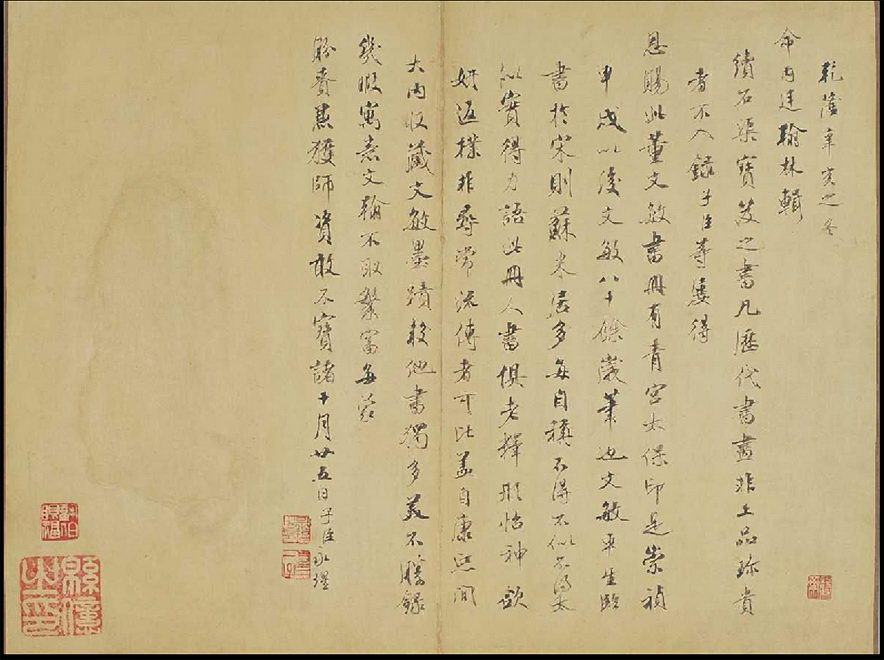 乾隆辛亥之冬
命內廷翰林輯
續石渠寶笈之書凡歷代書畫非上品珍貴
者不入錄子臣等屢得
恩賜此董文敏書冊有青宮太保印是崇禎
甲戌以後文敏八十餘歲筆也文敏平生臨
書於宋則蘇米居多每自稱不得不似不得太
似實得力語此冊人書俱老釋形怡神欲
妍返樸非尋常流傳者可比蓋自康熙間
大內收藏文敏墨蹟較他書獨多美不勝錄
幾暇寓意文翰不取繁富每蒙
賚獲師資敢不寶諸十月廿五日子臣永瑆